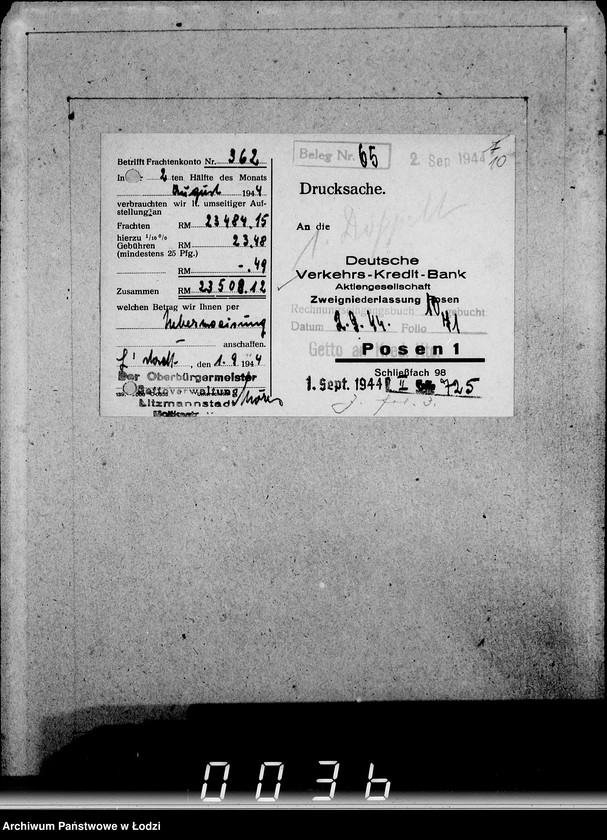 Betrifft Frachtenkonto Nr. 362
In 2 ten Hälfte des Monats
August 1944
verbrauchten wir lt. umseitiger Auf-
stellung an
Frachten RM 23484.15
hierzu 1/10 %
Gebühren RM 23.48
(mindestens 25 Pfg.)
RM -.49
Zusammen RM 23508.12
welchen Betrag wir Ihnen per
Ueberweisung
anschaffen.
, den 1.9 1944
Der Oberbürgermeister
Gettoverwaltung
Litzmannstadt
Beleg Nr. 65
2 Sep 1944
7/10
Drucksache.
An die
Deutsche
Verkehrs-Kredit-Bank
Aktiengesellschaft
Zweigniederlassung Posen
gebucht
Datum 2.9.44. Folio 71
Getto
Posen 1
Schließfach 98
1. Sept. 1944 725
0036
Archiwum Państwowe w Łodzi